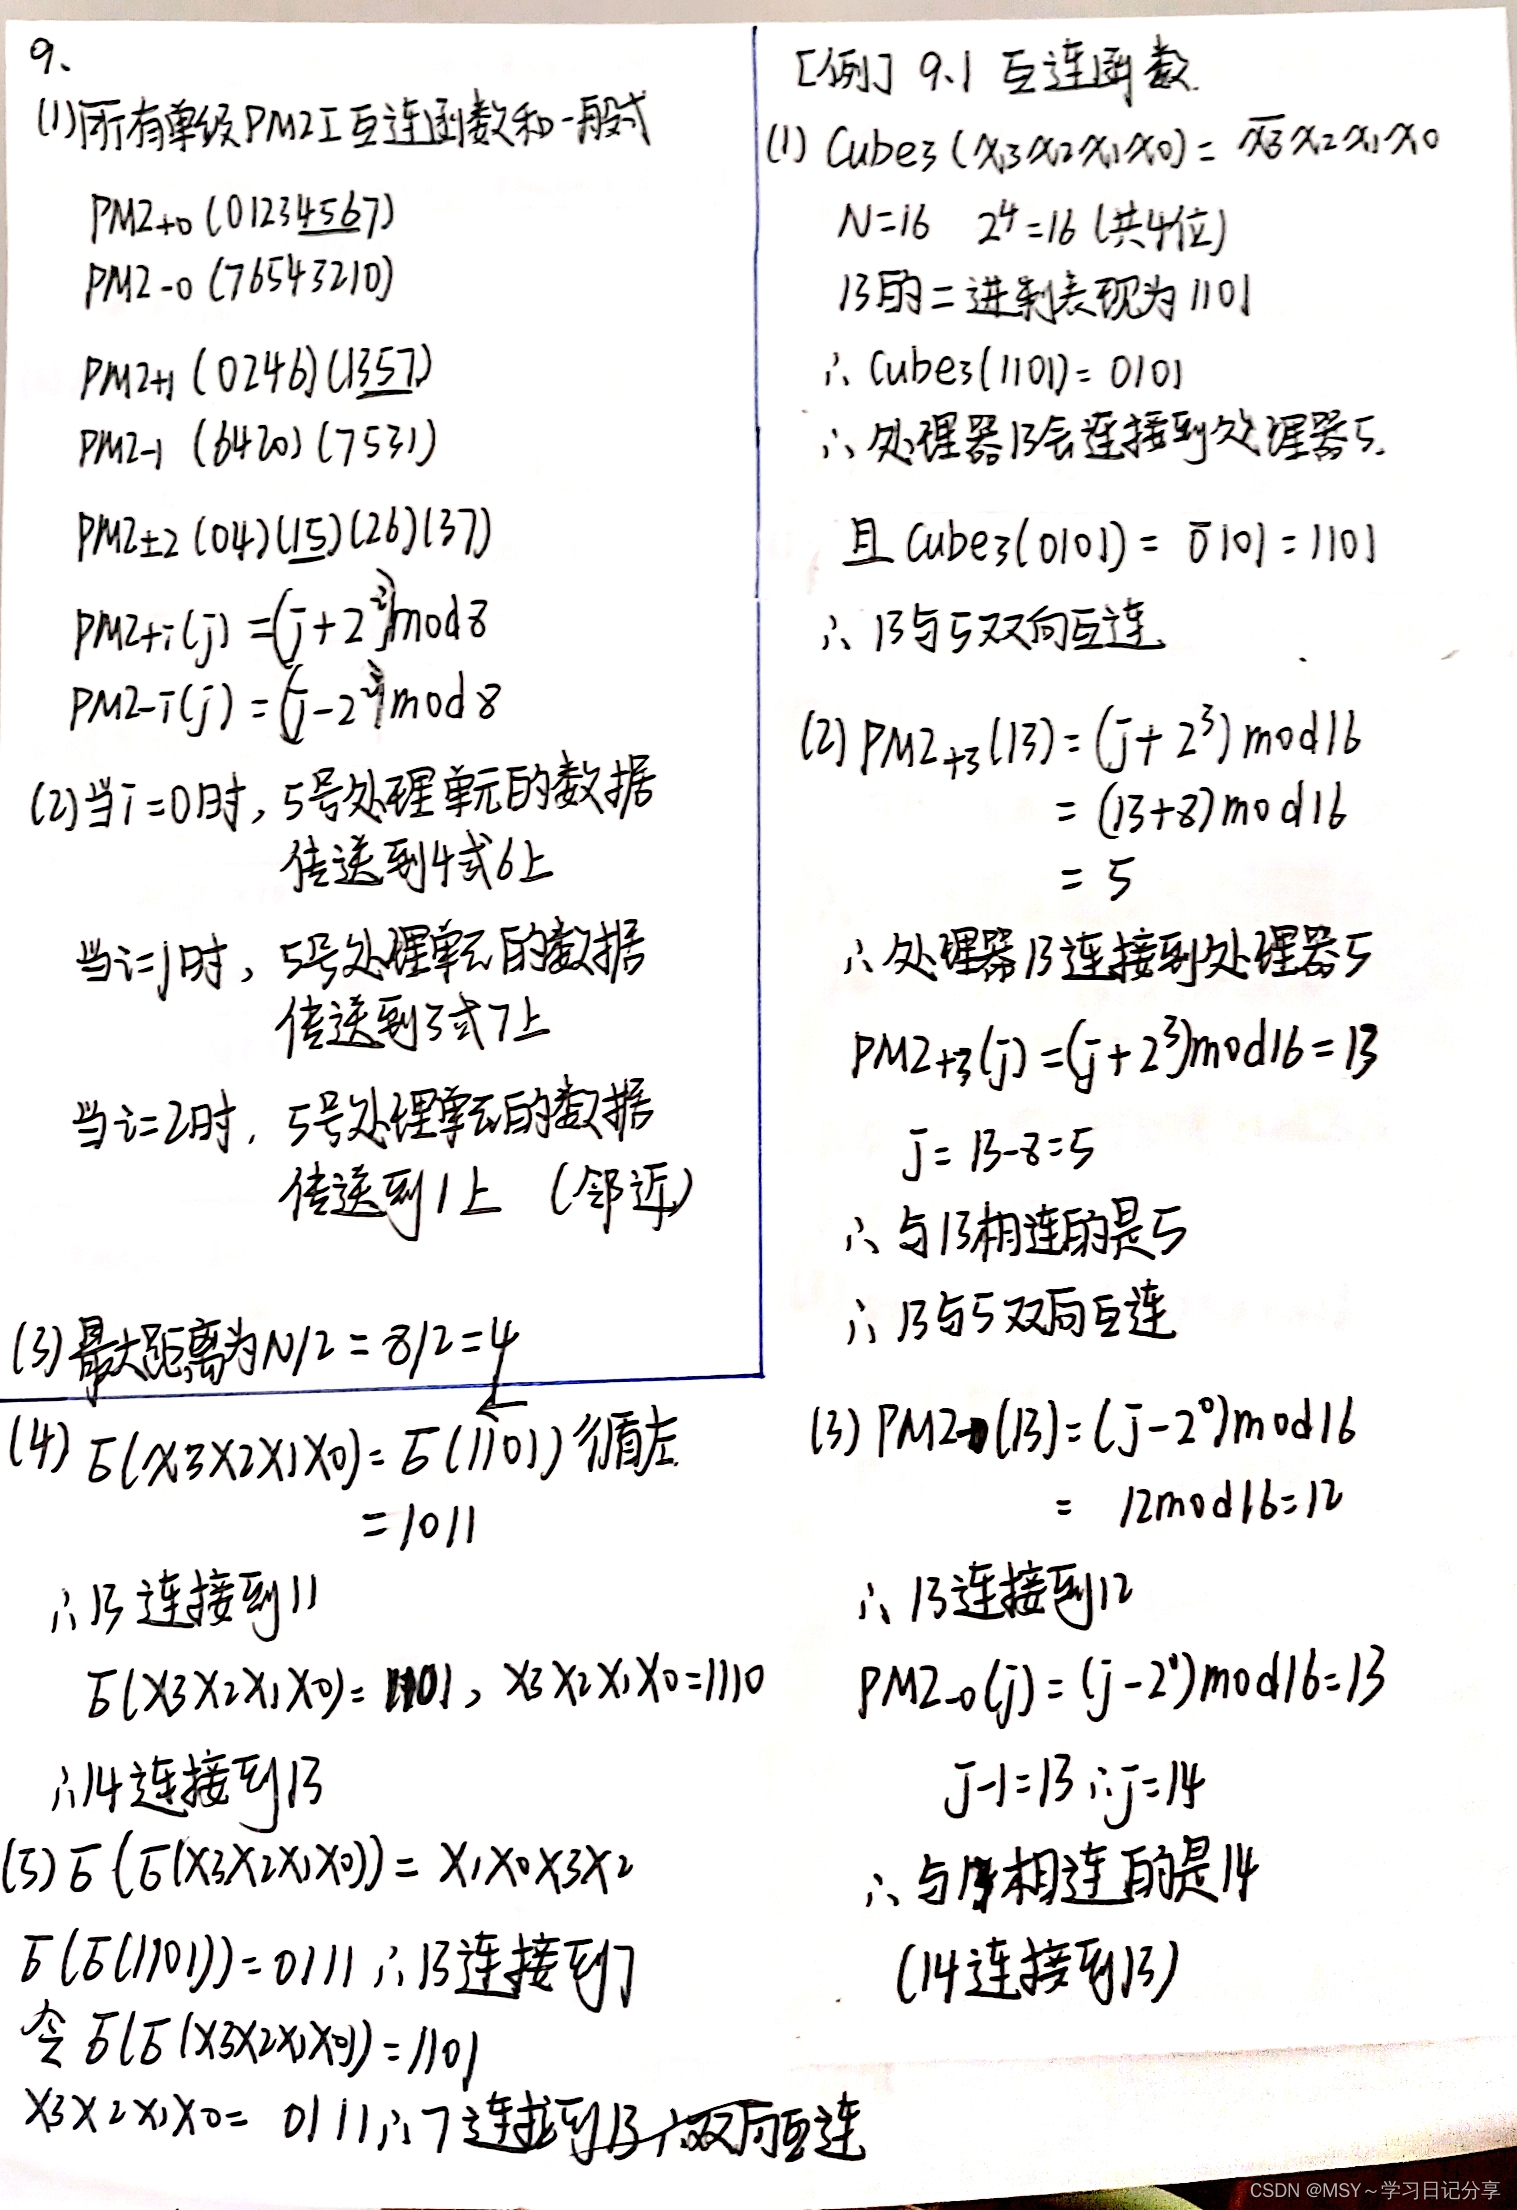 9、
(1)所有单级PM2I互连函数和一般式
PM2+0 (01234567)
PM2-0 (76543210)
PM2+1 (0246)(1357)
PM2-1 (6420)(7531)
PM2±2 (04)(15)(26)(37)
PM2+i(j) =(j+2^i)mod8
PM2-i(j) =(j-2^i)mod8
(2)当i=0时, 5号处理单元的数据
传送到4或6上
当i=1时, 5号处理单元的数据
传送到3或7上
当i=2时, 5号处理单元的数据
传送到1上 (邻近)
(3)最大距离为N/2 = 8/2=4
[例] 9.1 互连函数.
(1) Cube3 (x3x2x1x0) = x̅3x2x1x0
N=16 2^4=16 (共4位)
13的二进制表现为1101
∴ Cube3(1101)= 0101
∴ 处理器13会连接到处理器5.
且 Cube3(0101) = 0̅101=1101
∴ 13与5双向互连
(2) PM2+3(13) = (j+2^3) mod16
= (13+8)mod16
= 5
∴处理器13连接到处理器5
PM2+3(j) =(j+2^3)mod16=13
j= 13-8=5
∴ 与13相连的是5
∴ 13与5双向互连
(3) PM2-0(13)=(j-2^0)mod16
= 12mod16=12
∴ 13连接到12
PM2-0(j) = (j-2^0)mod16=13
j-1=13∴j=14
∴ 与13相连的是14
(14连接到13)
(4) б(x3x2x1x0)= б(1101) 循左
=1011
∴13连接到11
б(x3x2x1x0)= 1101, x3x2x1x0=1110
∴14连接到13
(5) б(б(x3x2x1x0))= x1x0x3x2
б(б(1101))=0111∴13连接到7
令 б(б(x3x2x1x0))=1101
x3x2x1x0= 0111∴7连接到13∴双向互连
CSDN @MSY~学习日记分享